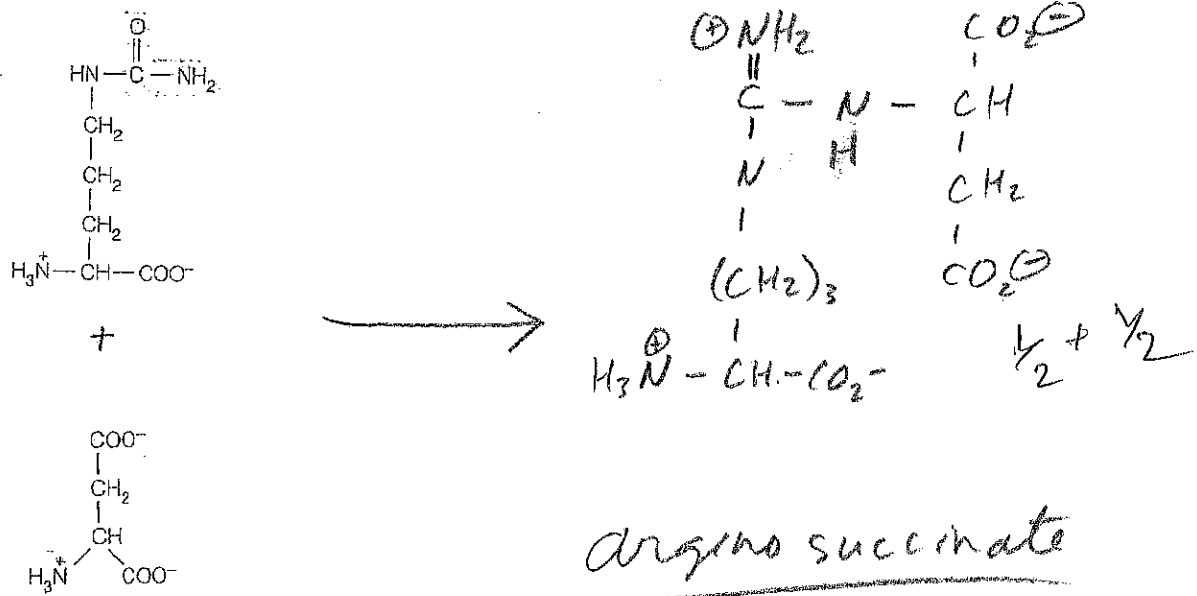 O
||
HN—C—NH₂
|
CH₂
|
CH₂
|
CH₂
|
H₃N⁺—CH—COO⁻
+
COO⁻
|
CH₂
|
CH
H₃N⁺ COO⁻
⊕NH₂
||
C – N – CH
H
N
(CH₂)₃
H₃N⊕ – CH – CO₂⁻
CO₂⊖
CH₂
CO₂⊖
½ + ½
argino succinate